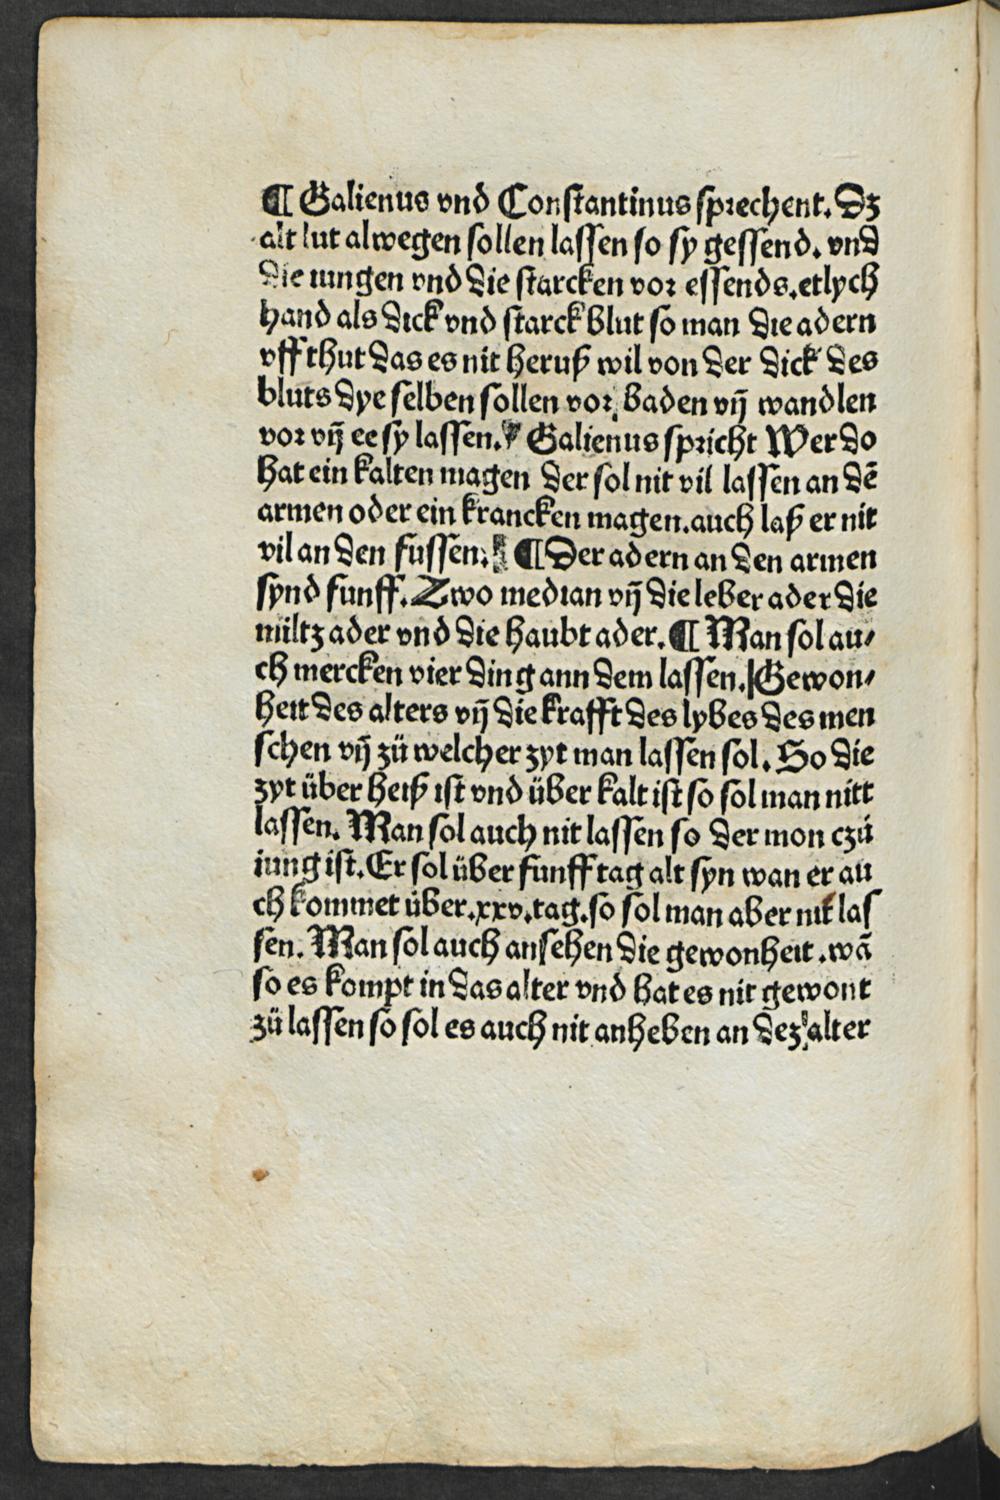 ¶ Galienus vnd Constantinus sprechent. Dz
alt lut alwegen sollen lassen so sy gessend. vnd
die iungen vnd die starcken vor essends. etlych
hand als dick vnd starck blut so man die adern
vff thut das es nit heruß wil von der dick des
bluts dye selben sollen vor baden vn̄ wandlen
vor vn̄ ee sy lassen. Galienus spricht Wer do
hat ein kalten magen der sol nit vil lassen an dē
armen oder ein krancken magen. auch laß er nit
vil an den fussen. ¶ Der adern an den armen
synd funff. Zwo median vn̄ die leber ader die
miltz ader vnd die haubt ader. ¶ Man sol au⸗
ch mercken vier ding ann dem lassen. Gewon⸗
heit des alters vn̄ die krafft des lybes des men
schen vn̄ zü welcher zyt man lassen sol. So die
zyt über heiß ist vnd über kalt ist so sol man nitt
lassen. Man sol auch nit lassen so der mon czü
iung ist. Er sol über funff tag alt syn wan er au
ch kommet über .xxv. tag. so sol man aber nit las
sen. Man sol auch ansehen die gewonheit. wā
so es kompt in das alter vnd hat es nit gewont
zü lassen so sol es auch nit anheben an dez alter